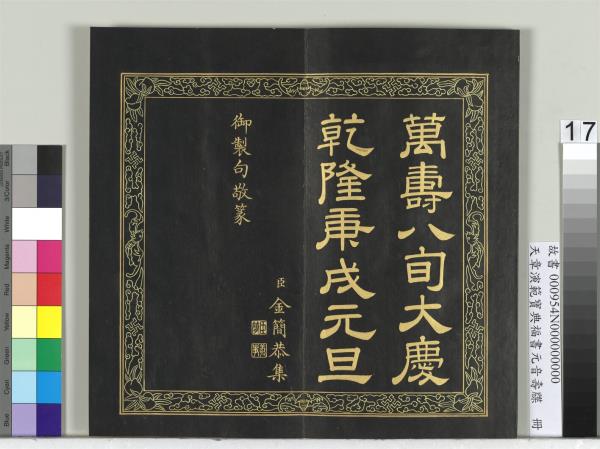 萬壽八旬大慶
乾隆庚戌元旦
御製句敬篆
臣金簡恭集
17
故書 000954N000000000
天章演範寶典福書元音壽牒 冊
Black
3/Color
White
Magenta
Red
Yellow
Green
Cyan
Blue